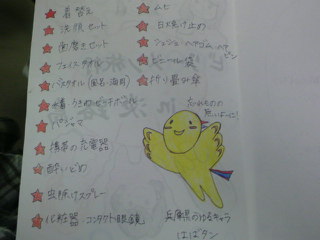 着替え
洗顔セット
歯磨きセット
フェイスタオル
バスタオル(風呂・海用)
水着 うきわ ビーチボール
パジャマ
携帯の充電器
酔いどめ
虫除けスプレー
化粧器 コンタクト 眼鏡
ムヒ
日焼け止め
シュシュ ヘアゴム ヘアピン
ビニール袋
折り畳み傘
忘れものの
無いように!
兵庫県のゆるキャラ
はばタン